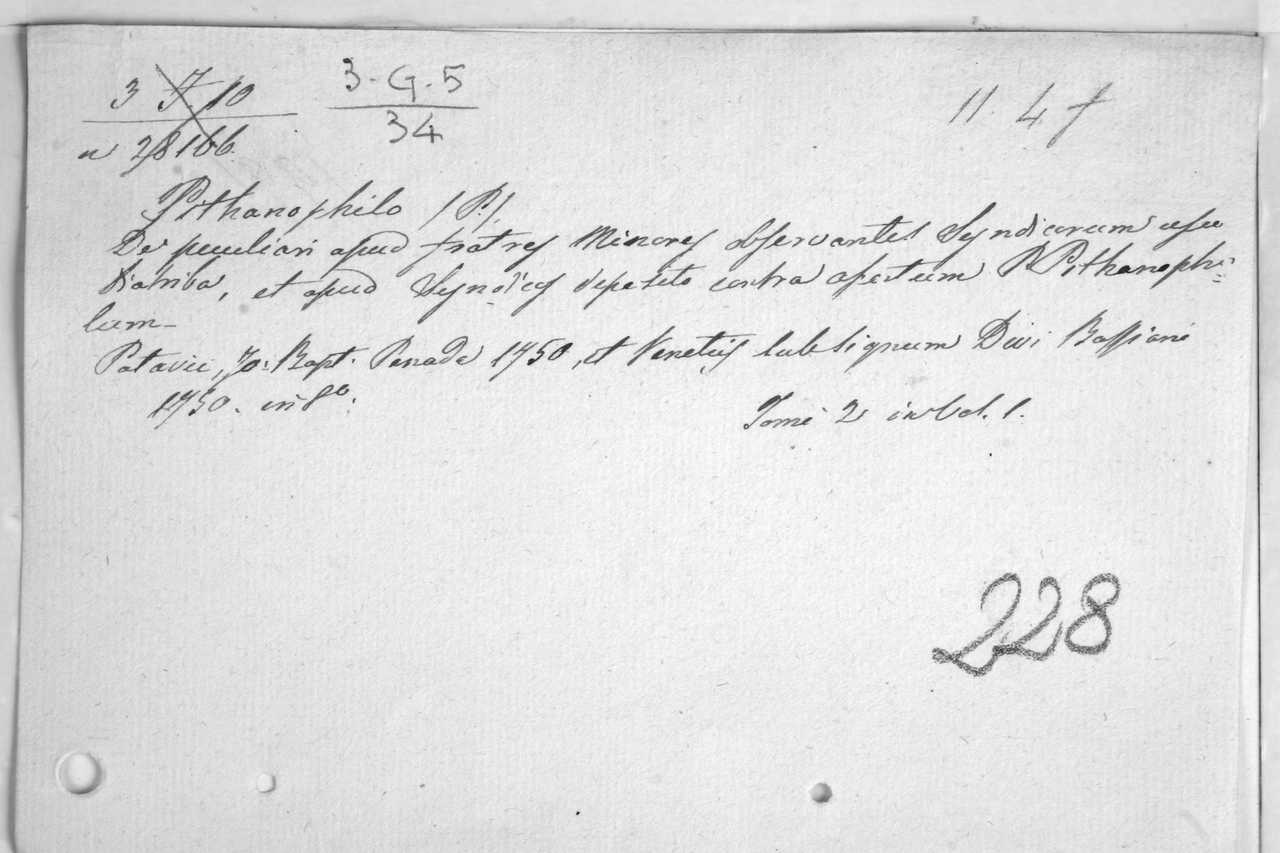 3 J 10
n 28166
3-G-5
34
11. 4 f
Pithanophilo (P.)
De peculiari apud fratres Minores observantes Syndicorum usu
Diatriba, et apud Syndicos deposito contra apertum P. Pithanophi-
lum-
Patavii, Jo: Bapt. Penada 1750, et Venetiis sub signum Divi Bassiani
1750. in 8º.
Tomi 2 in vol. 1.
228